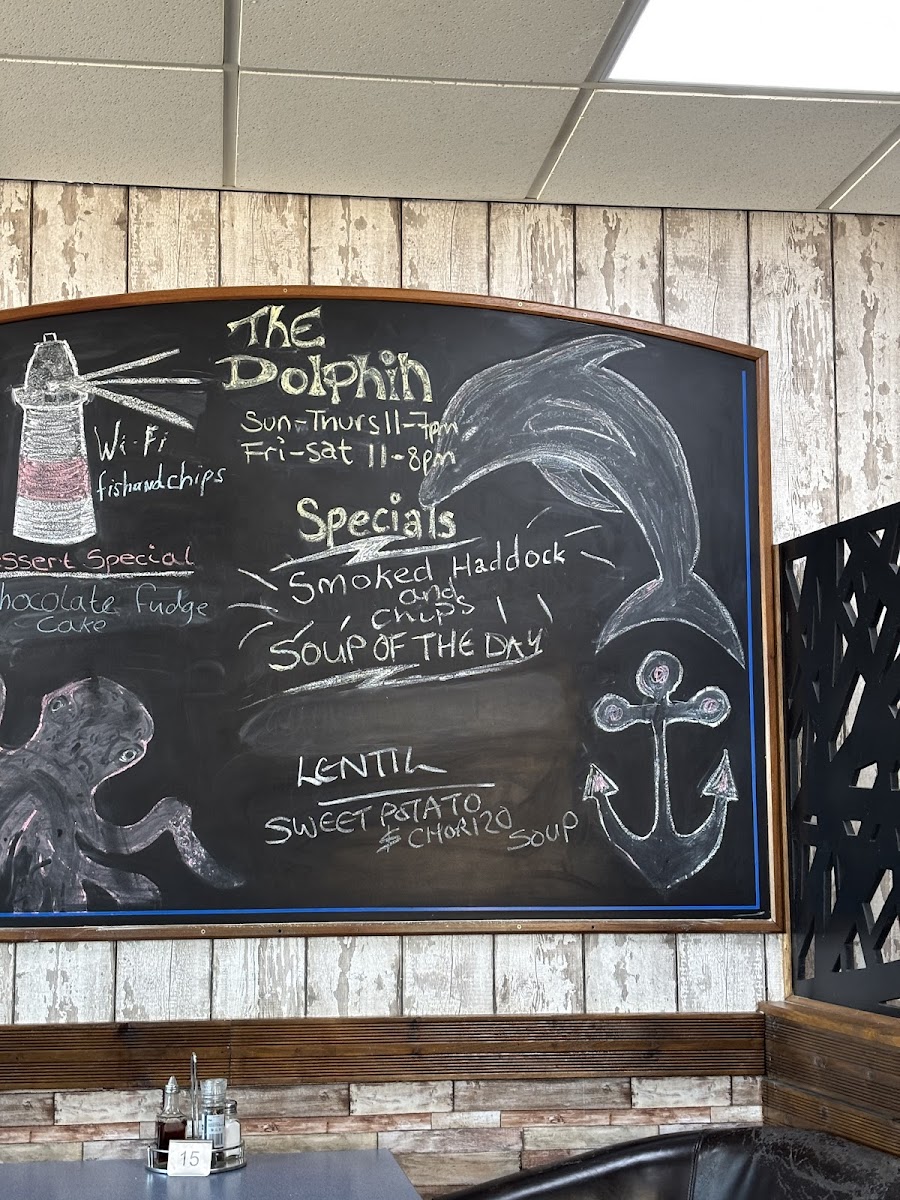 The
Dolphin
Sun-Thurs 11-7pm
Fri-Sat 11-8pm
Wi-Fi
fishandchips
Specials
ssert Special
hocolate Fudge
Cake
Smoked Haddock
and
Chips
SOUP OF THE DAY
LENTIL
SWEET POTATO
& CHORIZO SOUP
15